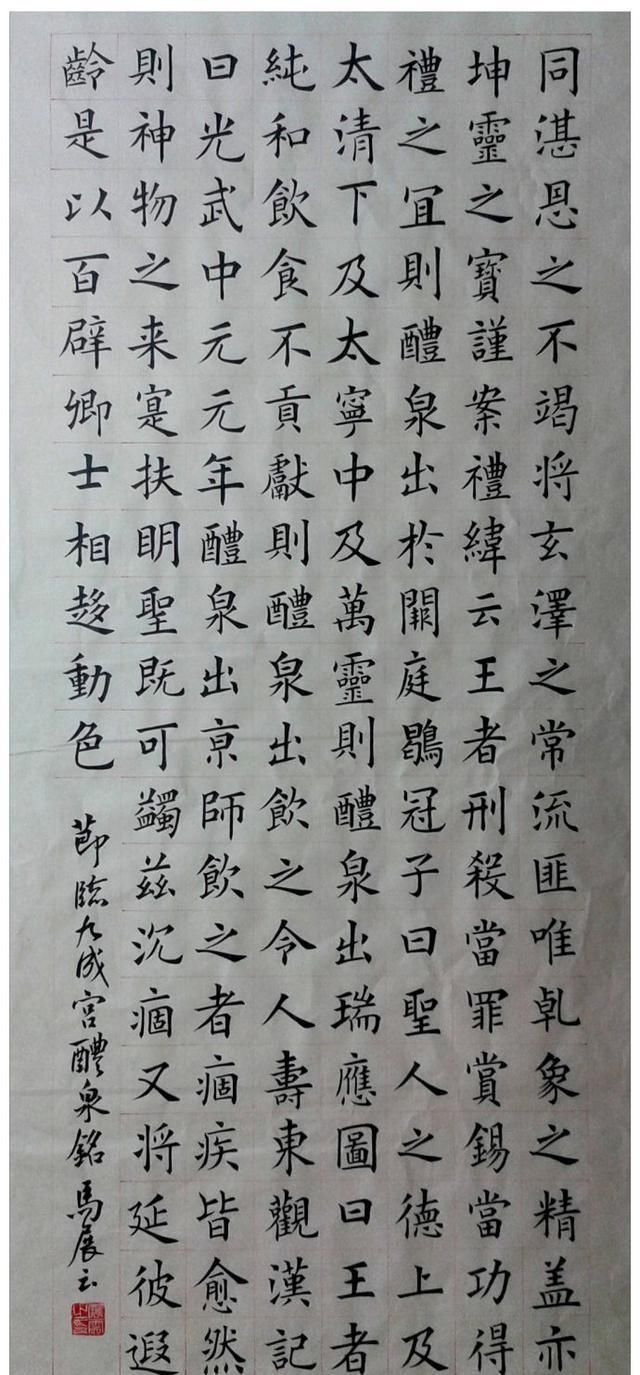 同湛恩之不竭将玄澤之常流匪唯乹象之精盖亦
坤靈之寶謹案禮緯云王者刑殺當罪賞錫當功得
禮之宜則醴泉出於闕庭鶡冠子曰聖人之德上及
太清下及太寧中及萬靈則醴泉出瑞應圖曰王者
純和飲食不貢獻則醴泉出飲之令人壽東觀漢記
曰光武中元元年醴泉出京師飲之者痼疾皆愈然
則神物之来寔扶明聖既可蠲兹沉痼又将延彼遐
齡是以百辟卿士相趍動色
節臨九成宫醴泉銘 馬展云